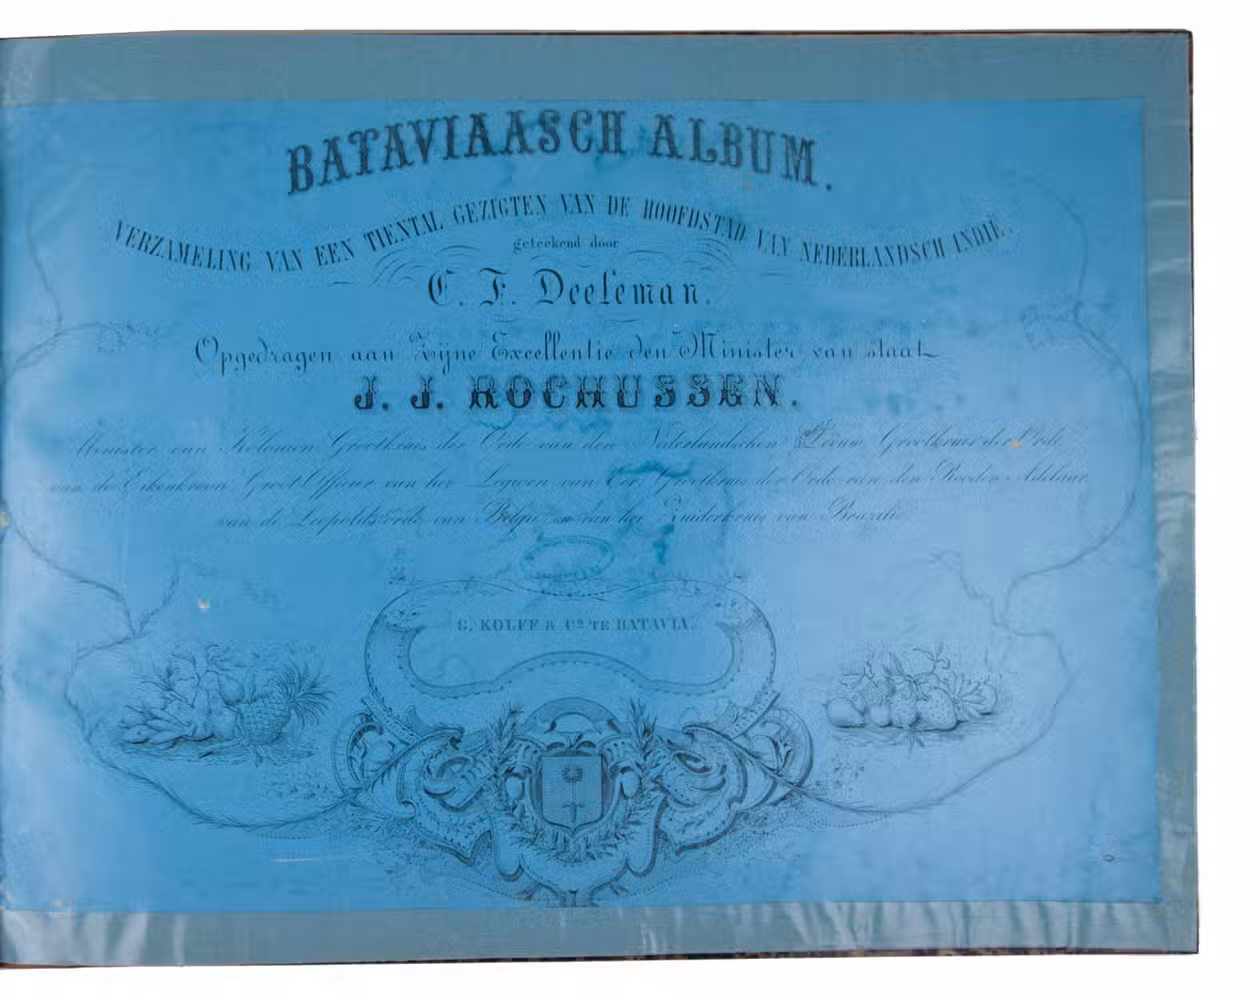 BATAVIAASCH ALBUM.
VERZAMELING VAN EEN TIENTAL GEZIGTEN VAN DE HOOFDSTAD VAN NEDERLANDSCH INDIE.
geteekend door
C. F. Deeleman.
Opgedragen aan Zijne Excellentie den Minister van staat
J. J. ROCHUSSEN.
Minister van Kolonien Grootkruis der Orde van den Nederlandschen Leeuw, Grootkruis der Orde
van de Eikenkroon Groot Officier van het Legioen van Eer, Grootkruis der Orde van den Rooden Adelaar
van de Leopoldsorde van Belgie en van het Zuiderkruis van Brazilie
G. KOLFF & Co. TE BATAVIA.